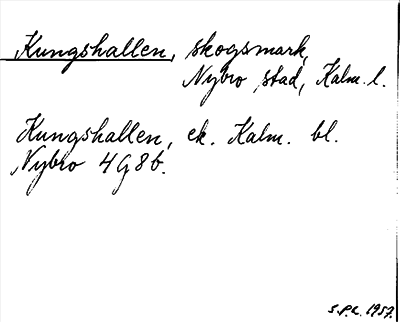 Kungshallen, skogsmark,
Nybro stad, Kalm. l.
Kungshallen, ek. Kalm. bl.
Nybro 4G8b.
S.P.L. 1957.